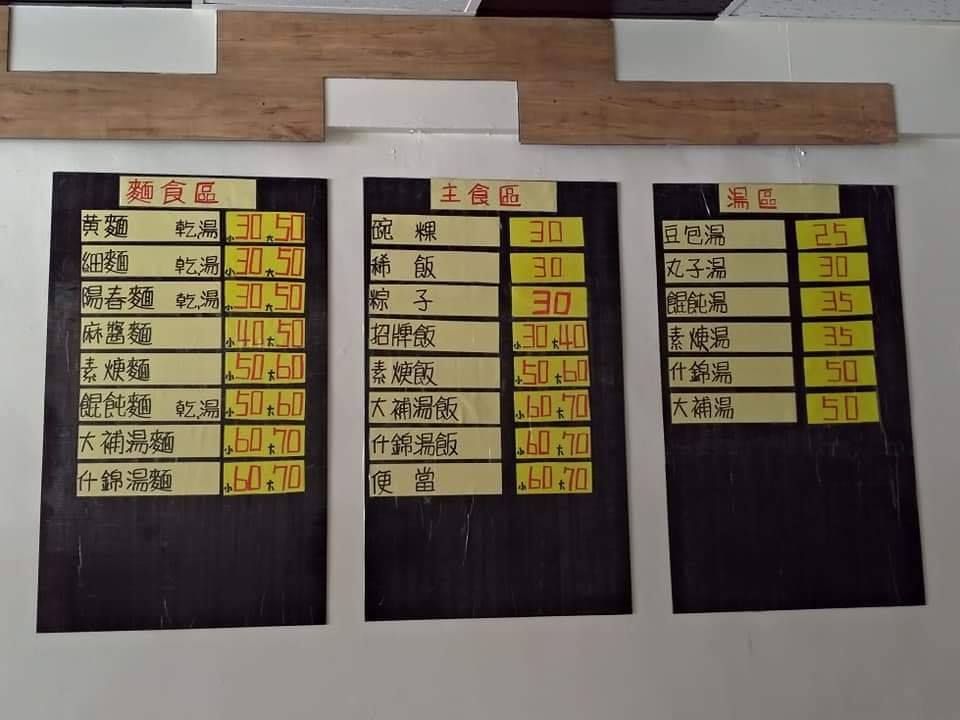 麵食區
黃麵 乾.湯 小30大50
細麵 乾.湯 小30大50
陽春麵 乾.湯 小30大50
麻醬麵 小40大50
素焿麵 小50大60
餛飩麵 乾.湯 小50大60
大補湯麵 小60大70
什錦湯麵 小60大70
主食區
碗粿 30
稀飯 30
粽子 30
招牌飯 小30大40
素焿飯 小50大60
大補湯飯 小60大70
什錦湯飯 小60大70
便當 小60大70
湯區
豆包湯 25
丸子湯 30
餛飩湯 35
素焿湯 35
什錦湯 50
大補湯 50